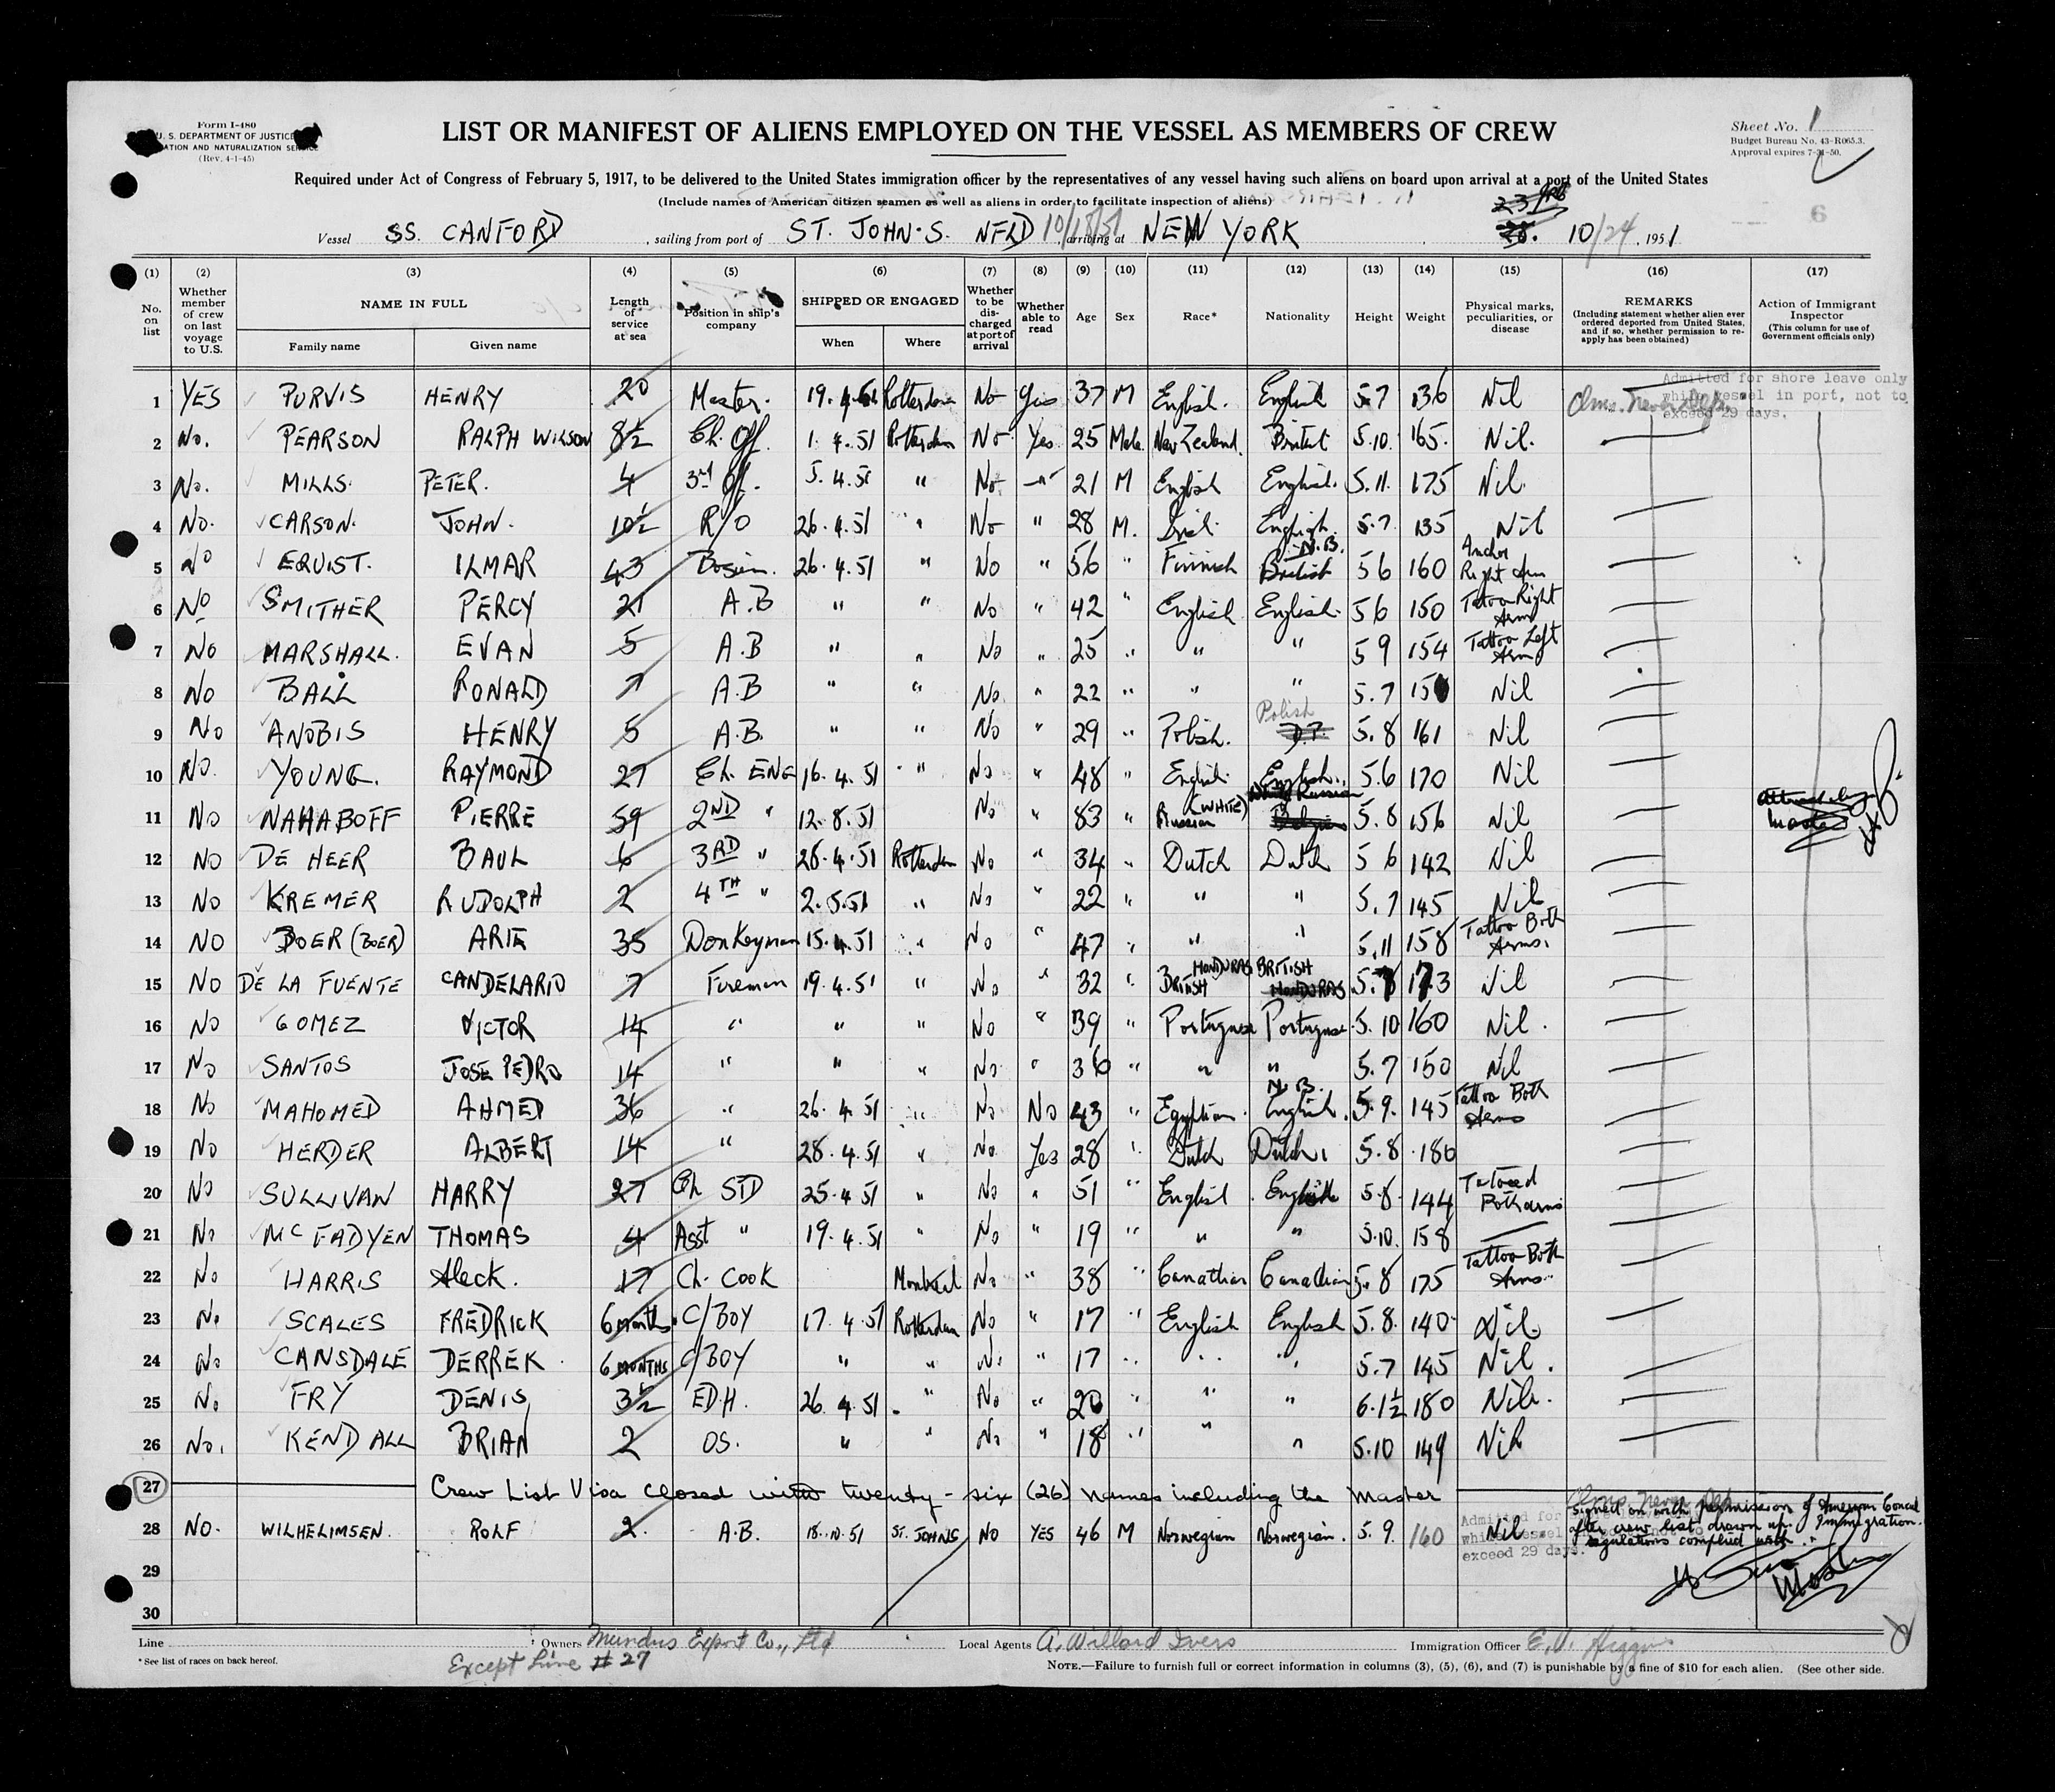 Form I-480
U. S. DEPARTMENT OF JUSTICE
(Rev. 4-1-45)
LIST OR MANIFEST OF ALIENS EMPLOYED ON THE VESSEL AS MEMBERS OF CREW
Sheet No. 1
Budget Bureau No. 43-R065.3.
Approval expires 7-31-50.
Required under Act of Congress of February 5, 1917, to be delivered to the United States immigration officer by the representatives of any vessel having such aliens on board upon arrival at a port of the United States
(Include names of American citizen seamen as well as aliens in order to facilitate inspection of aliens)
6
Vessel SS. CANFORD, sailing from port of ST. JOHN'S. NFLD 10/18/51 arriving at NEW YORK 10/24, 1951
(1) (2) (3) (4) (5) (6) (7) (8) (9) (10) (11) (12) (13) (14) (15) (16) (17)
No. on list
Whether member of crew on last voyage to U.S.
NAME IN FULL
Family name Given name
Length of service at sea
Position in ship's company
SHIPPED OR ENGAGED
When Where
Whether to be discharged at port of arrival
Whether able to read
Age Sex Race* Nationality Height Weight
Physical marks, peculiarities, or disease
REMARKS
(Including statement whether alien ever ordered deported from United States, and if so, whether permission to reapply has been obtained)
Action of Immigrant Inspector
(This column for use of Government officials only)
Admitted for shore leave only
while vessel in port, not to
exceed 29 days.
1 YES PURVIS HENRY 20 Master. 19.4.51 Rotterdam No Yes 37 M English. English 5.7 136 Nil
2 No. PEARSON RALPH WILSON 8½ Ch. Off. 1.4.51 Rotterdam No Yes 25 Male New Zealand. British 5.10. 165. Nil.
3 No. MILLS. PETER. 4 3rd Of. 5.4.51 " No " 21 M English English. 5.11. 175 Nil.
4 No. CARSON. JOHN. 10½ R/O 26.4.51 " No " 28 M. Irish English. 5.7. 135 Nil
5 No EQUIST. ILMAR 43 Bosun. 26.4.51 " No " 56 " Finnish N.B. British 5 6 160 Anchor Right Arm
6 No SMITHER PERCY 21 A.B " " No " 42 " English English. 5 6 150 Tatoo Right Arm
7 No MARSHALL. EVAN 5 A.B " " No " 25 " " " 5 9 154 Tattoo Left Arm
8 No BALL RONALD 7 A.B " " No. " 22 " " " 5.7 150 Nil
9 No ANOBIS HENRY 5 A.B. " " No " 29 " Polish. Polish 5.8 161 Nil
10 No. YOUNG. RAYMOND 27 Ch. ENG 16.4.51 " No " 48 " English. English.. 5.6 170 Nil
11 No NAHABOFF PIERRE 59 2ND " 12.8.51 No " 83 " (WHITE) Russian 5.8 156 Nil
12 NO DE HEER BAUL 6 3RD " 28.4.51 Rotterdam No " 34 " Dutch Dutch 5 6 142 Nil
13 NO KREMER RUDOLPH 2 4TH " 2.5.51 " No " 22 " " " 5.7 145 Nil
14 NO BOER (BOER) ARIE 35 Donkeyman 15.4.51 " No " 47 " " " 5.11 158 Tattoo Both Arms.
15 NO DE LA FUENTE CANDELARIO 7 Fireman 19.4.51 " No " 32 " BRITISH HONDURAS BRITISH HONDURAS 5.7 173 Nil
16 No GOMEZ VICTOR 14 " " " No " 39 " Portuguese Portuguese 5.10 160 Nil.
17 No SANTOS JOSE PEDRO 14 " " " No " 36 " " " 5.7 150 Nil
18 No MAHOMED AHMED 36 " 26.4.51 " No No 43 " Egyptian. N.B. English. 5.9. 145 Tattoo Both Arms
19 No HERDER ALBERT 14 " 28.4.51 " No Yes 28 " Dutch Dutch. 5.8 186
20 No SULLIVAN HARRY 27 Ch STD 25.4.51 " No " 51 " English English 5.8. 144 Tatooed Both arms
21 No MC FADYEN THOMAS 4 Asst " 19.4.51 " No " 19 " " " 5.10. 158
22 No HARRIS Aleck. 17 Ch. Cook Montreal No " 38 " Canadian Canadian 5.8 175 Tattoo Both Arms.
23 No SCALES FREDRICK 6 months. C/BOY 17.4.51 Rotterdam No " 17 " English English 5.8. 140. Nil.
24 No CANSDALE DERREK. 6 MONTHS C/BOY " " No " 17 " " " 5.7 145 Nil.
25 No FRY DENIS 3½ EDH. 26.4.51 " No " 20 " " " 6.1½ 180 Nil.
26 No. KENDALL BRIAN 2 OS. " " No " 18 " " " 5.10 149 Nil
27 Crew List Visa closed with twenty-six (26) names including the Master
28 NO. WILHELIMSEN. ROLF 2. A.B. 18.10.51 ST. JOHNS NO YES 46 M Norwegian Norwegian. 5.9. 160 Nil
Signed on with permission of American Consul
after crew list drawn up. Immigration.
regulations complied with.
Admitted for
while vessel
exceed 29 days.
29
30
Line Owners Mundus Export Co., Ltd Local Agents A. Willard Ivers Immigration Officer E.V. Higgins
*See list of races on back hereof.
Except Line # 27
NOTE.—Failure to furnish full or correct information in columns (3), (5), (6), and (7) is punishable by a fine of $10 for each alien. (See other side.